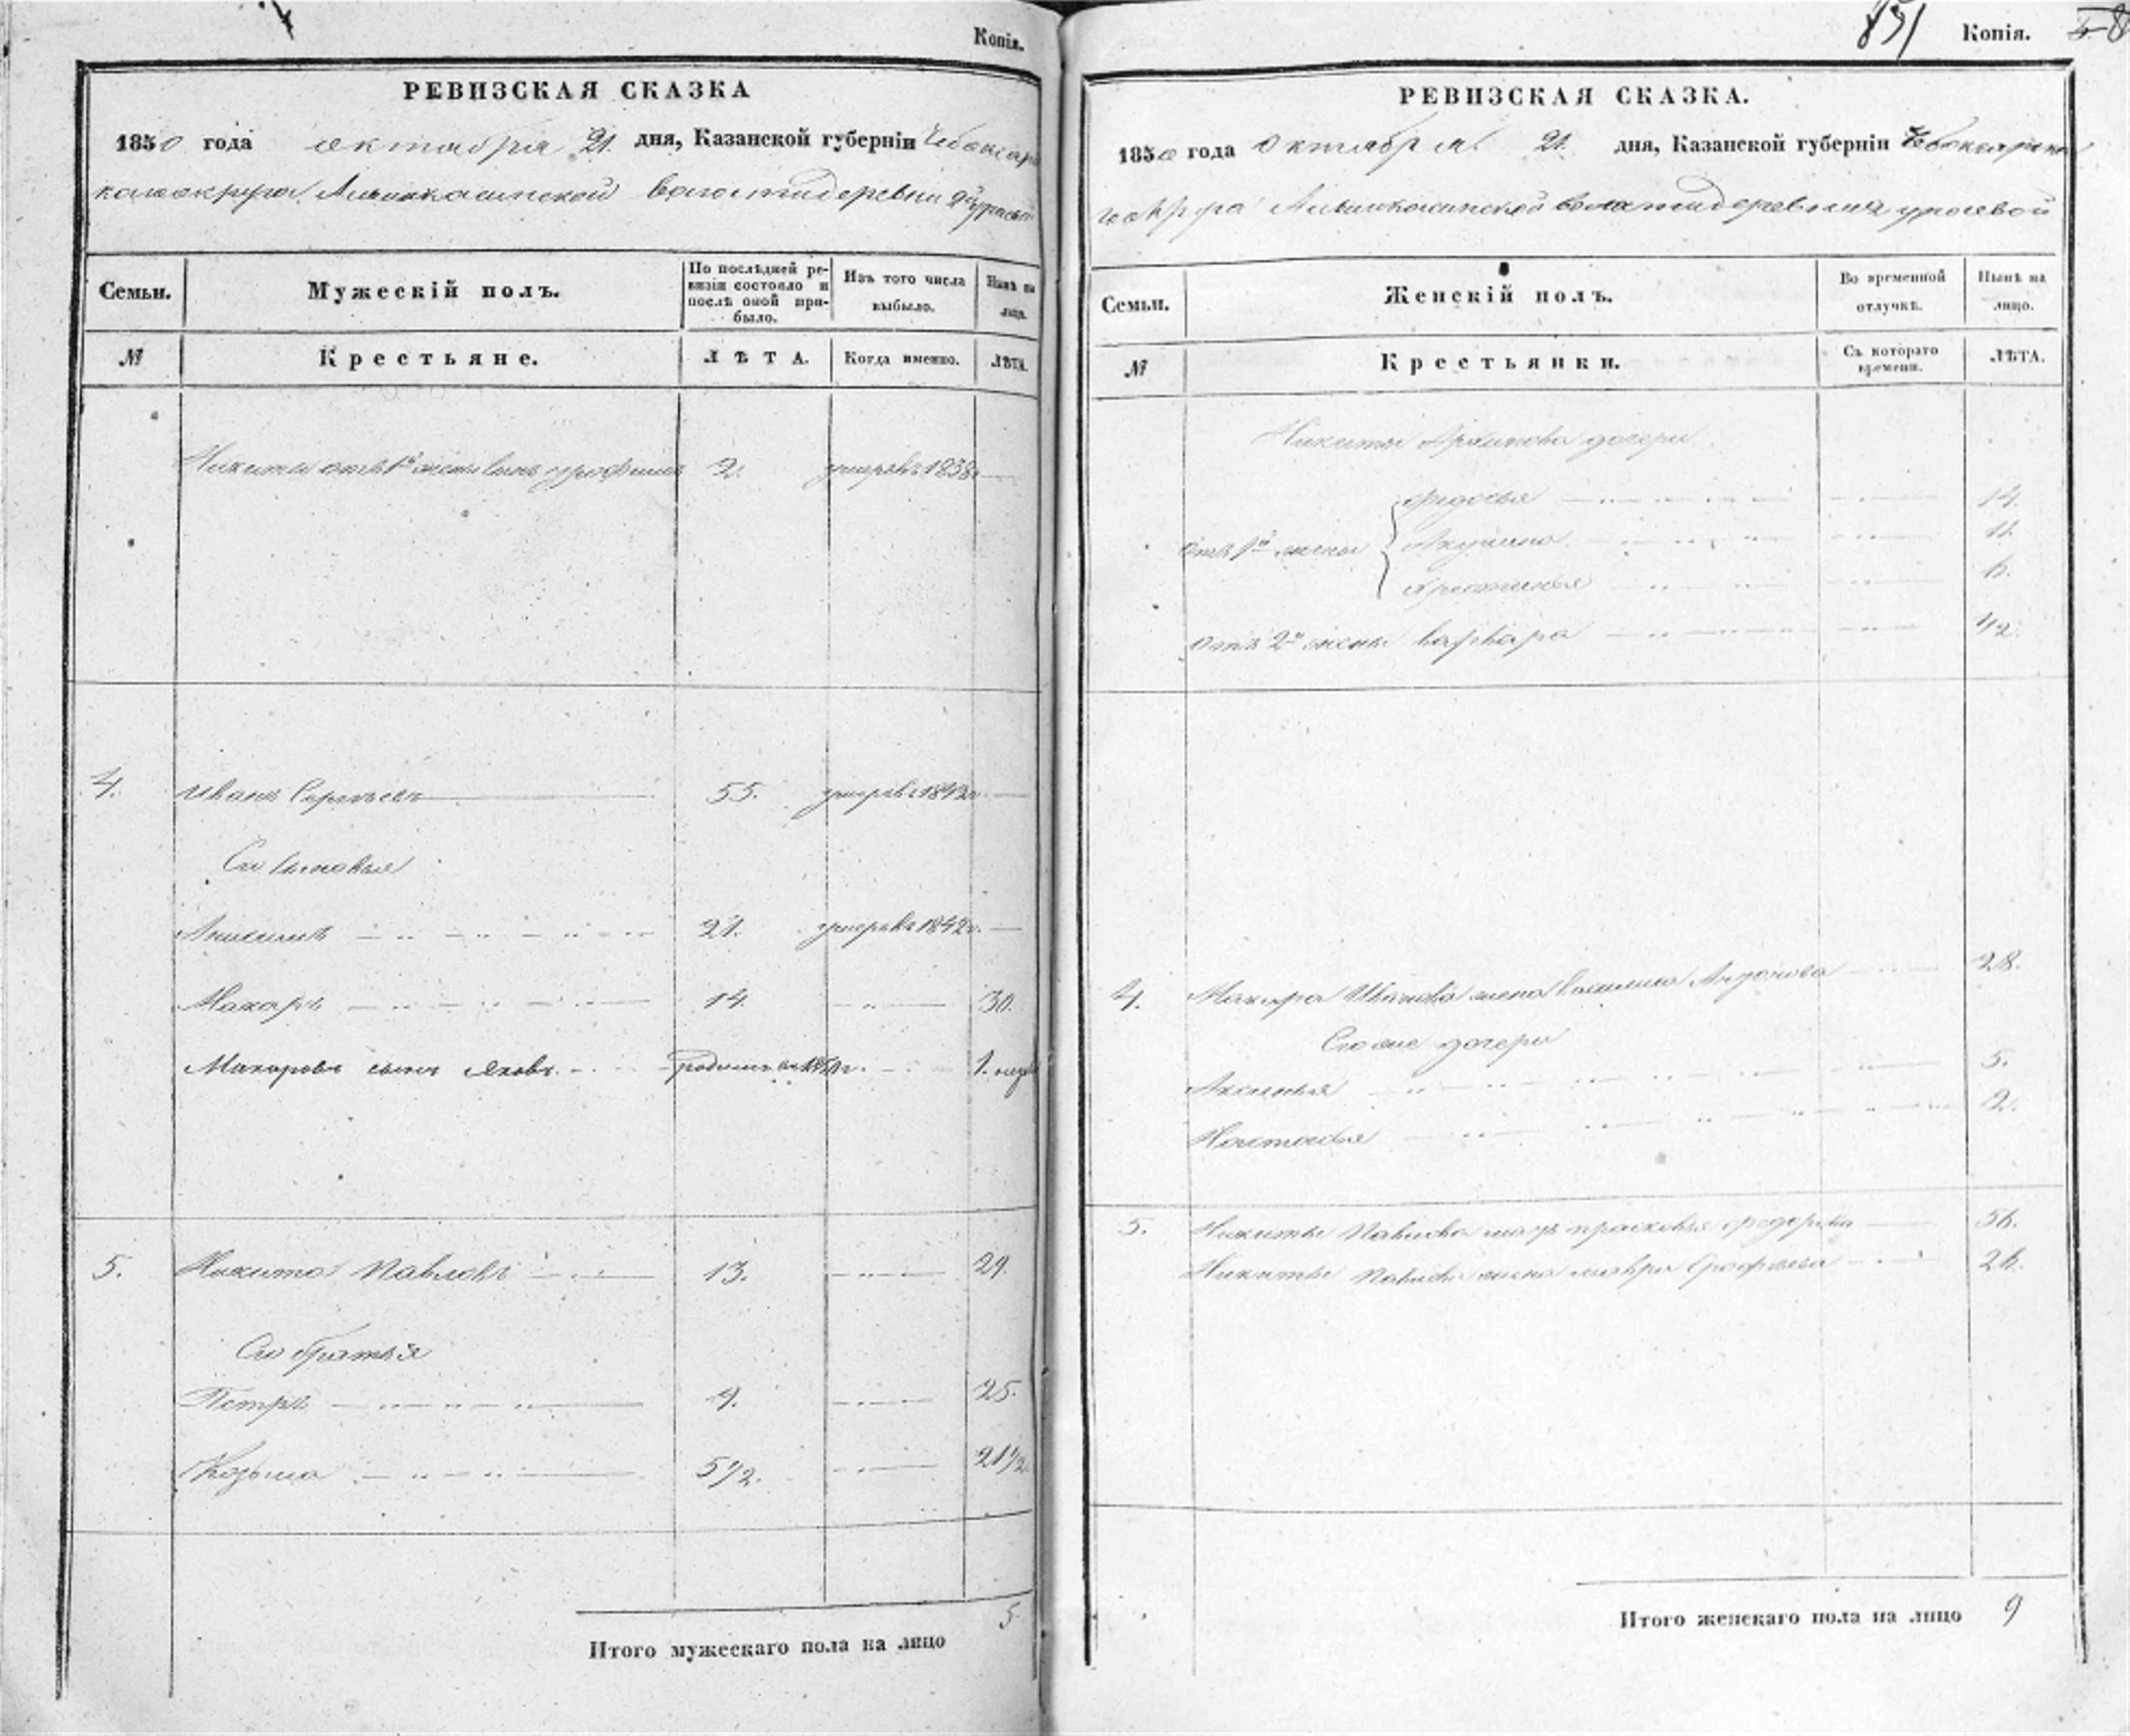 Копія.
РЕВИЗСКАЯ СКАЗКА
1850 года октября 21. дня, Казанской губерніи Чебоксар
скаго округа, волости деревни
Семьи.
Мужескій полъ.
По послѣдней ре-
визіи состояло и
послѣ оной при-
было.
Изъ того числа
выбыло.
Нынѣ на
лицо.
№
Крестьяне.
ЛѢТА.
Когда именно.
ЛѢТА.
Никиты отъ 1й жены сынъ Трофимъ 2. умеръ въ 1838г.
4. Иванъ Сергѣевъ 55. умеръ въ
Его сыновья
Анисимъ 21. умеръ въ 1842г.
Макаръ 14. 30.
Макаровъ сынъ Яковъ родился въ 1850г. 1. нед
5. Никита Павловъ 13. 29.
Его братья
Петръ 9. 25.
Козьма 5 1/2. 21 1/2
5
Итого мужескаго пола на лицо
831 Копія.
РЕВИЗСКАЯ СКАЗКА.
1850 года Октября 21. дня, Казанской губерніи Чебоксарска
го округа волости деревни
Семьи.
Женскій полъ.
Во временной
отлучкѣ.
Нынѣ на
лицо.
№
Крестьянки.
Съ котораго
времени.
ЛѢТА.
Никиты Архипова дочери
Федосья 14.
отъ 1й жены Акулина 11.
Аристинья 6.
отъ 2й жены Варвара 1/2.
4. Макара Иванова жена Василиса Андонова 28.
Его же дочери
Аксинья 5.
Настасья 2.
5. Никиты Павлова мать Прасковья Федорова 56.
Никиты Павлова жена Мавра 26.
Итого женскаго пола на лицо 9